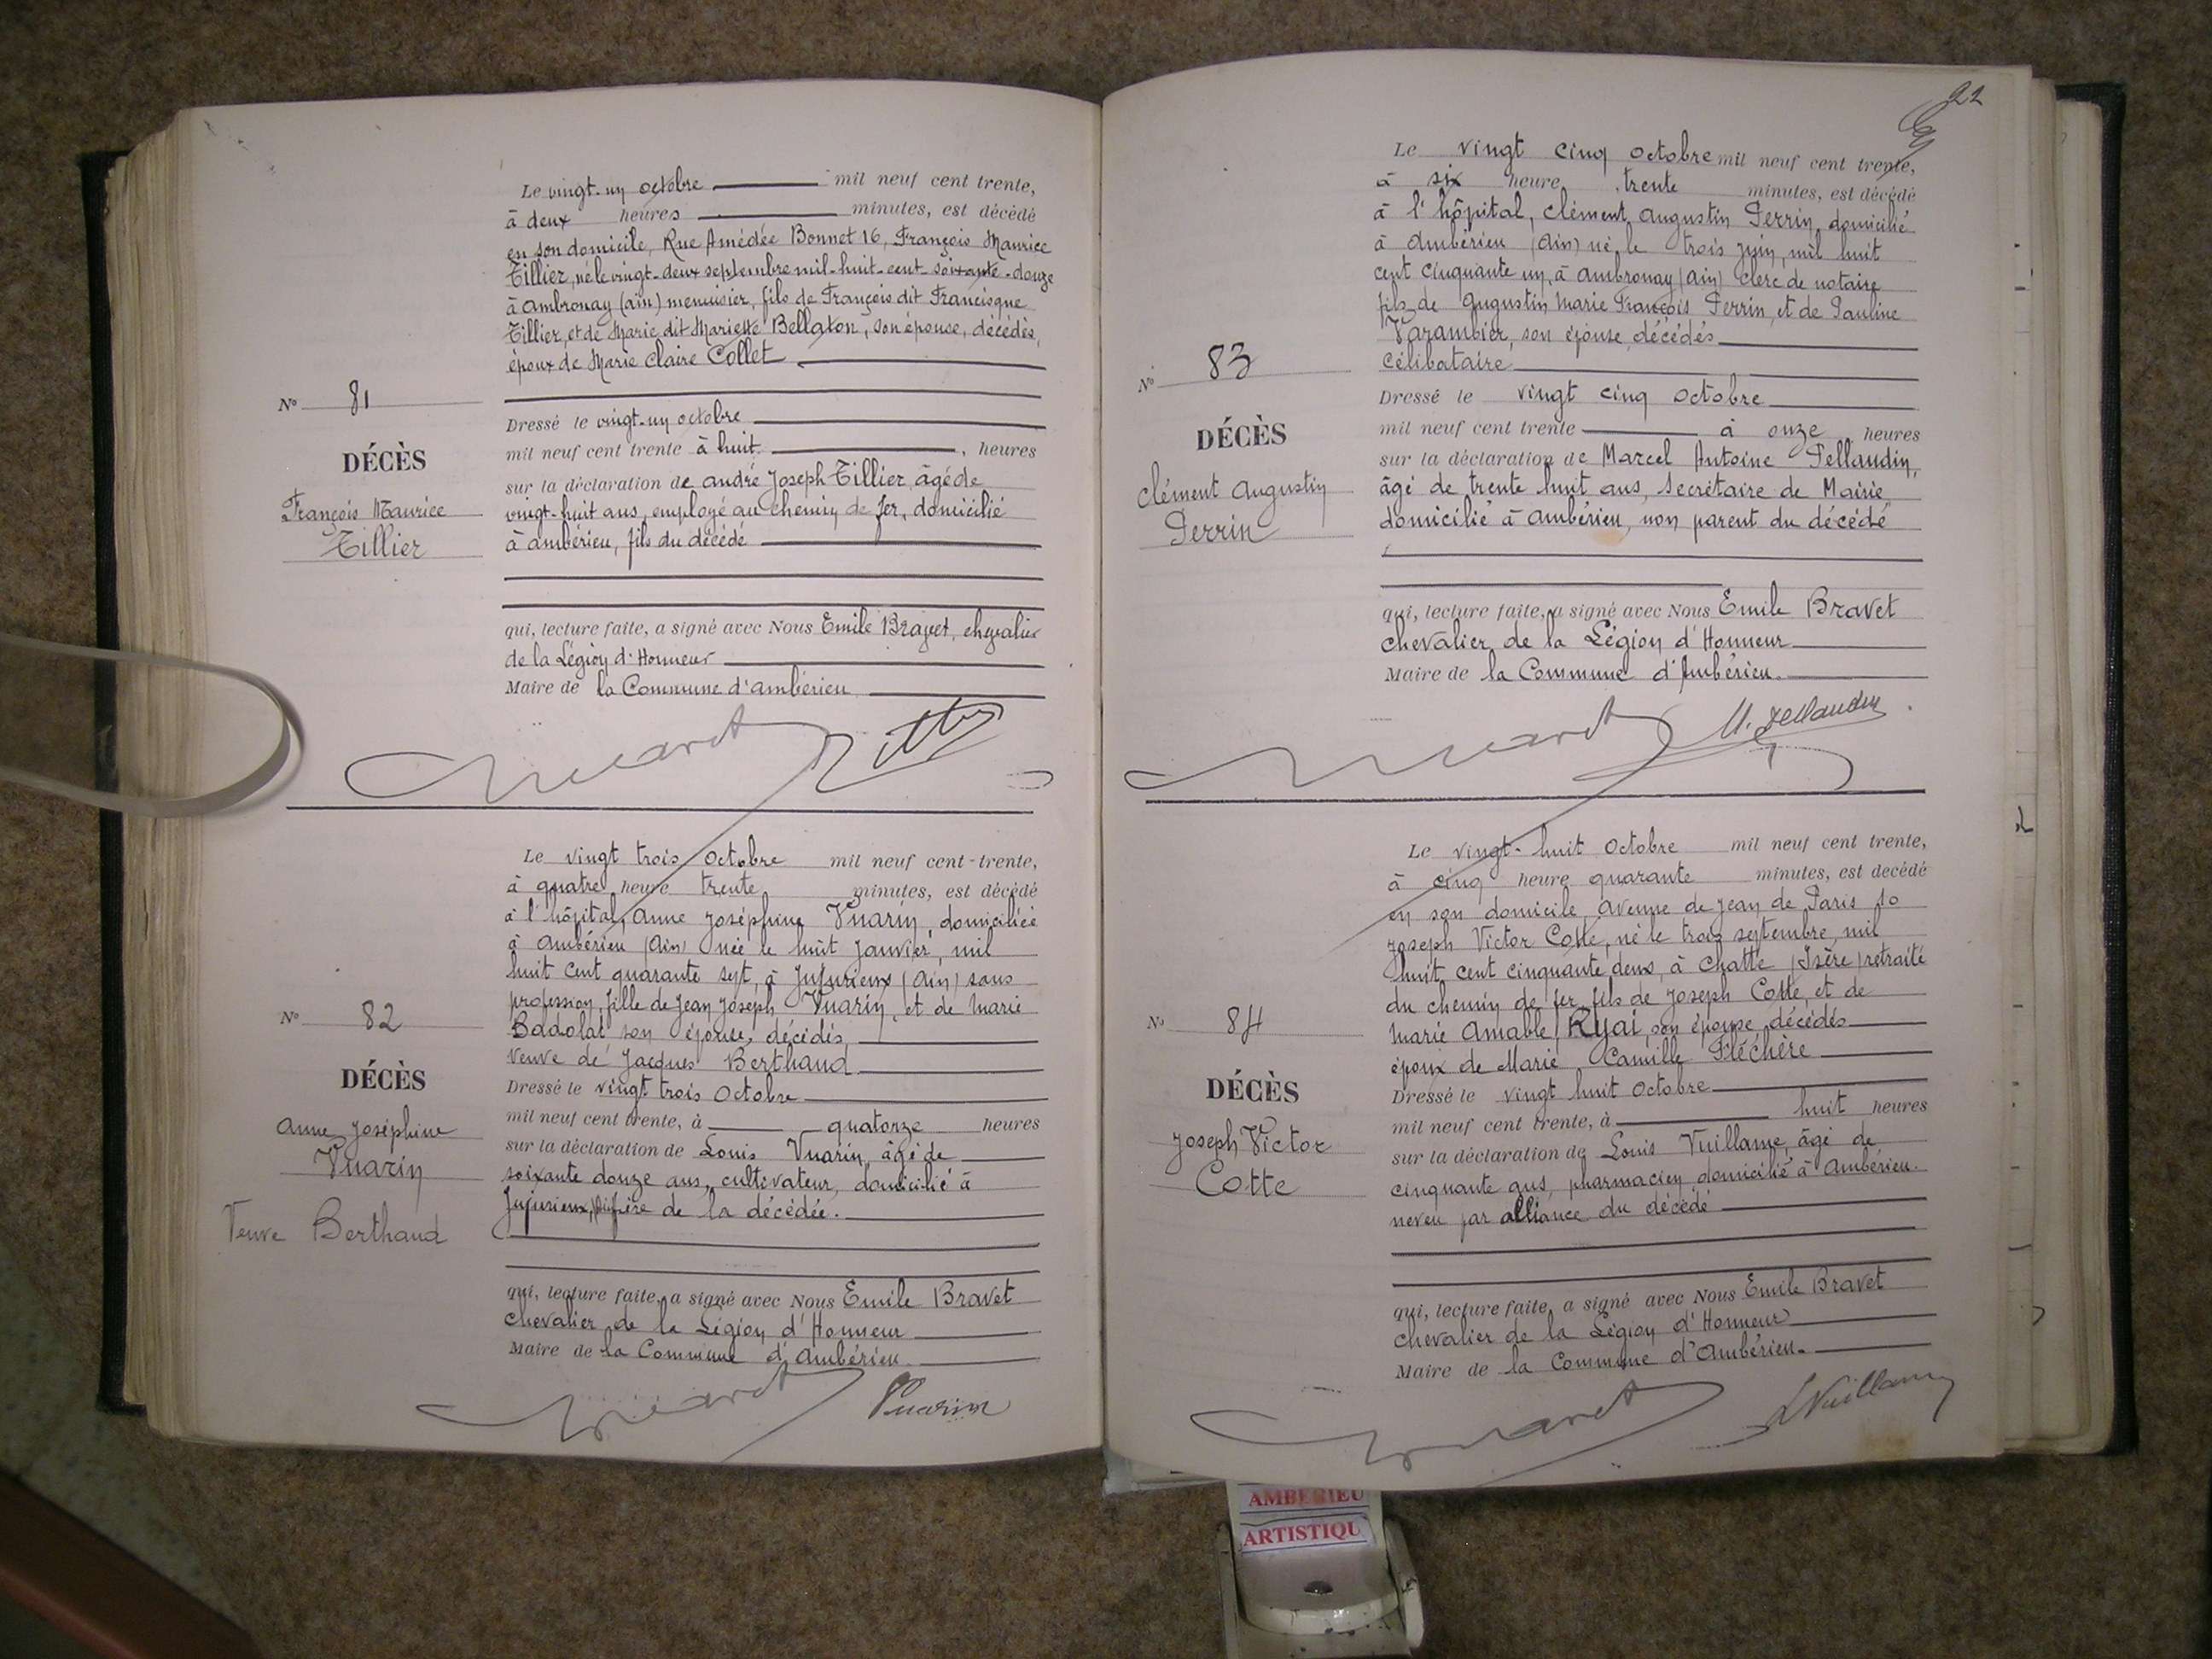 Le vingt-un octobre mil neuf cent trente,
à deux heures minutes, est décédé
en son domicile, Rue Amédée Bonnet 16, François Maurice
Tillier, né le vingt-deux septembre mil-huit-cent soixante-douze
à Ambronay (ain) menuisier, fils de François dit Francisque
Tillier, et de Marie dit Mariette Bellaton, son épouse, décédés,
époux de Marie Claire Collet
N° 81
DÉCÈS
François Maurice
Tillier
Dressé le vingt-un octobre
mil neuf cent trente à huit, heures
sur la déclaration de andré Joseph Tillier, âgé de
vingt-huit ans, employé au chemin de fer, domicilié
à ambérieu, fils du décédé
qui, lecture faite, a signé avec Nous Emile Bravet, chevalier
de la Légion d'Honneur
Maire de la Commune d'ambérieu
Le vingt trois Octobre mil neuf cent-trente,
à quatre heure trente minutes, est décédé
à l'hôpital, Anne Joséphine Vuarin, domiciliée
à Ambérieu (Ain) née le huit Janvier, mil
huit cent quarante sept, à Jujurieux (Ain) sans
profession, fille de Jean Joseph Vuarin, et de Marie
Badolat, son épouse, décédés,
Veuve de Jacques Berthaud
N° 82
DÉCÈS
Anne Joséphine
Vuarin
Veuve Berthaud
Dressé le vingt trois Octobre
mil neuf cent trente, à quatorze heures
sur la déclaration de Louis Vuarin, âgé de
soixante douze ans, cultivateur, domicilié à
Jujurieux, frère de la décédée.
qui, lecture faite, a signé avec Nous Emile Bravet
Chevalier de la Légion d'Honneur
Maire de la Commune d'Ambérieu
Vuarin
22
Le vingt cinq octobre mil neuf cent trente,
à six heure trente minutes, est décédé
à l'hôpital, Clément Augustin Perrin, domicilié
à Ambérieu (Ain) né le trois juin, mil huit
cent cinquante un, à Ambronay (Ain) clerc de notaire
fils de Augustin Marie François Perrin, et de Pauline
Varambier, son épouse, décédés
célibataire
N° 83
DÉCÈS
Clément Augustin
Perrin
Dressé le vingt cinq octobre
mil neuf cent trente à onze heures
sur la déclaration de Marcel Antoine Pellaudin,
âgé de trente huit ans, secrétaire de Mairie
domicilié à Ambérieu, non parent du décédé
qui, lecture faite, a signé avec Nous Emile Bravet
chevalier de la Légion d'Honneur
Maire de la Commune d'Ambérieu.
M. Pellaudin
Le vingt-huit Octobre mil neuf cent trente,
à cinq heure quarante minutes, est décédé
en son domicile, avenue de Jean de Paris 10
Joseph Victor Cotte, né le trois septembre, mil
huit cent cinquante deux, à Chatte (Isère) retraité
du chemin de fer, fils de Joseph Cotte, et de
Marie Amable Ryai, son épouse, décédés
époux de Marie Camille Fléchère
N° 84
DÉCÈS
Joseph Victor
Cotte
Dressé le vingt huit Octobre
mil neuf cent trente, à huit heures
sur la déclaration de Louis Vuillame, âgé de
cinquante ans, pharmacien, domicilié à Ambérieu.
neveu par alliance du décédé
qui, lecture faite, a signé avec Nous Emile Bravet
chevalier de la Légion d'Honneur
Maire de la Commune d'Ambérieu.
AMBERIEU
ARTISTIQU